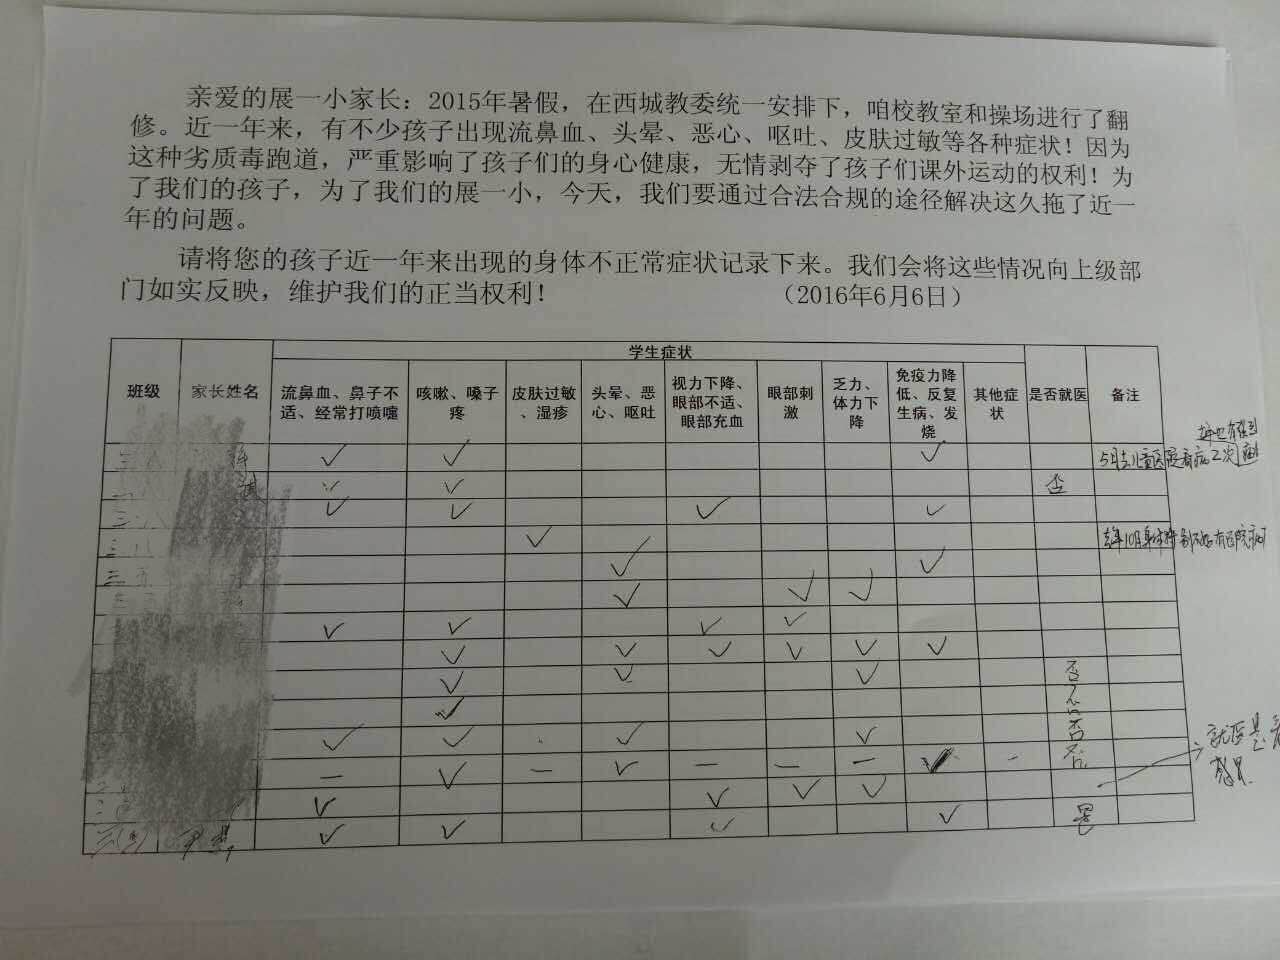 亲爱的展一小家长：2015年暑假，在西城教委统一安排下，咱校教室和操场进行了翻
修。近一年来，有不少孩子出现流鼻血、头晕、恶心、呕吐、皮肤过敏等各种症状！因为
这种劣质毒跑道，严重影响了孩子们的身心健康，无情剥夺了孩子们课外运动的权利！为
了我们的孩子，为了我们的展一小，今天，我们要通过合法合规的途径解决这久拖了近一
年的问题。
请将您的孩子近一年来出现的身体不正常症状记录下来。我们会将这些情况向上级部
门如实反映，维护我们的正当权利！ （2016年6月6日）
学生症状
班级 家长姓名 流鼻血、鼻子不适、经常打喷嚏 咳嗽、嗓子疼 皮肤过敏、湿疹 头晕、恶心、呕吐 视力下降、眼部不适、眼部充血 眼部刺激 乏力、体力下降 免疫力降低、反复生病、发烧 其他症状 是否就医 备注
✓ ✓ ✓ 5月去儿童医院看病2次
✓ ✓ 否
✓ ✓ ✓ ✓
三 八 ✓
三 五 ✓ ✓
✓ ✓ ✓
✓ ✓ ✓ ✓
✓ ✓ ✓ ✓ ✓ ✓
✓ ✓ ✓ 否
✓ 否
✓ ✓ ✓ ✓ 否
— ✓ — ✓ — — — ✓ - 否
✓ ✓ ✓ ✓ 就医是
✓ ✓ ✓ ✓ 是